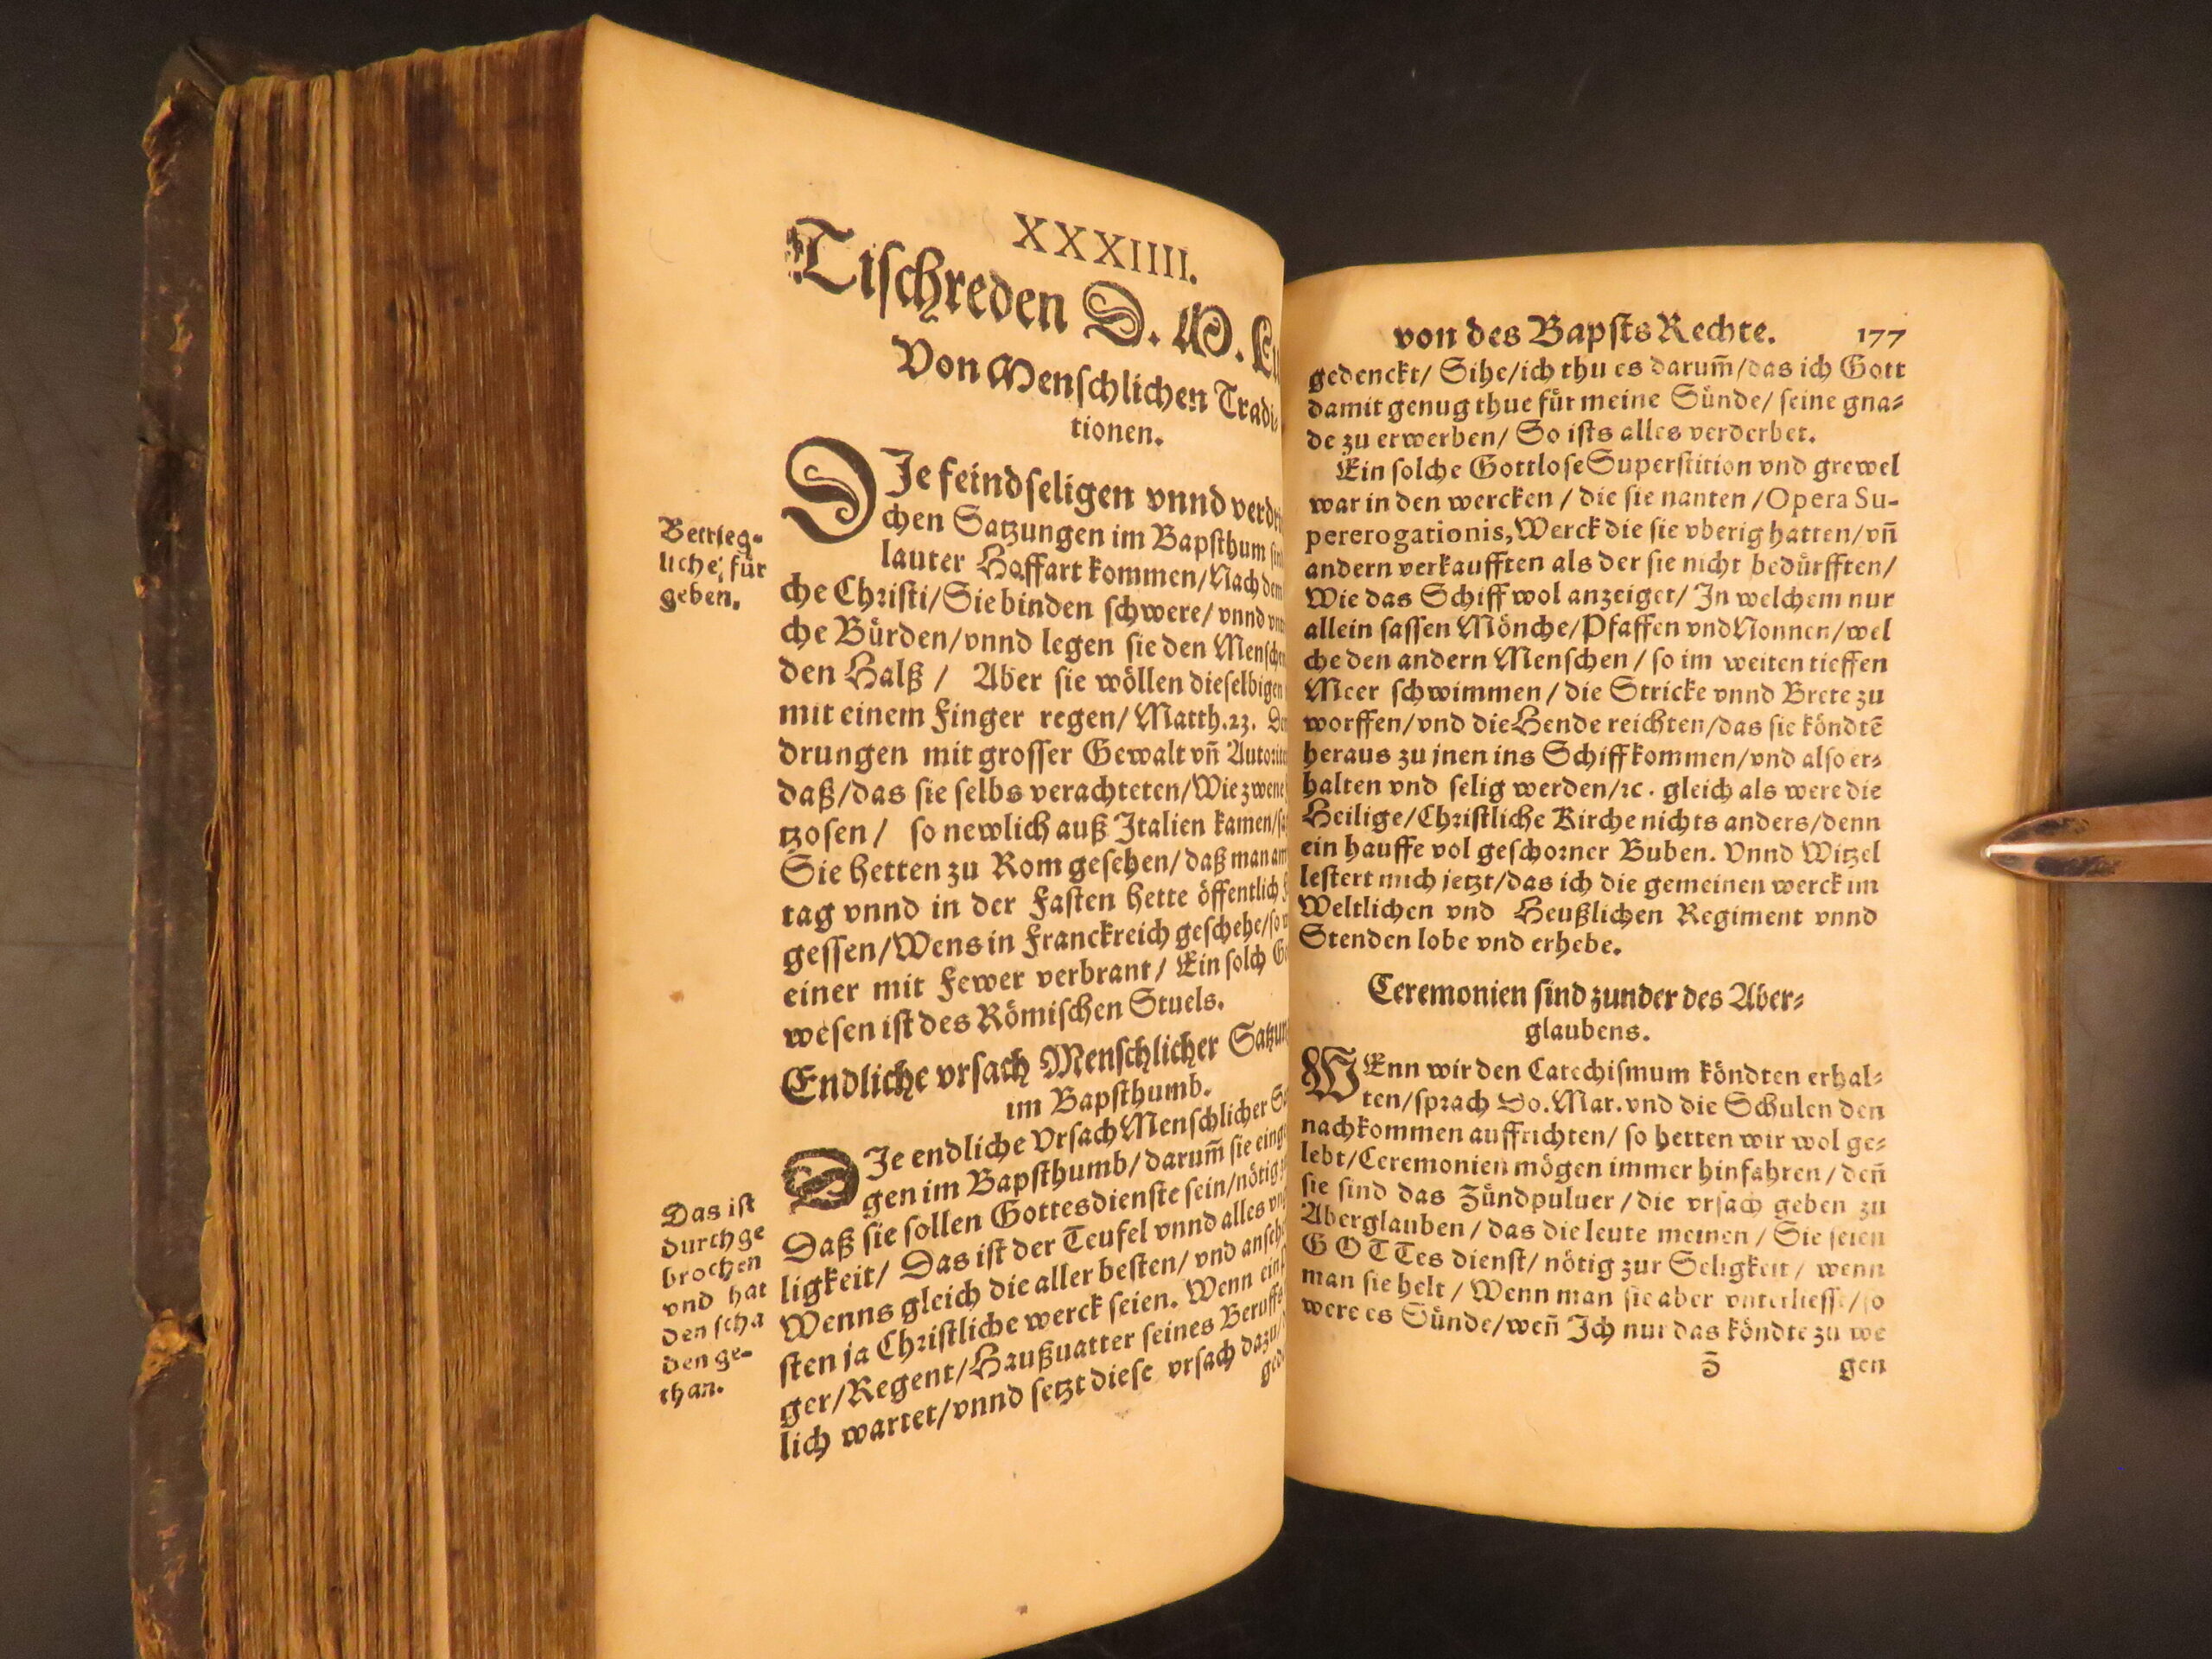 XXXIIII.
Tischreden D. M.
Von Menschlichen Tradi-
tionen.
DJe feindseligen vnnd
chen Satzungen im Bapsthum
lauter Hoffart kommen/Nach dem
che Christi/Sie binden schwere/vnnd
che Bürden/vnnd legen sie den
den Halß / Aber sie wöllen dieselbigen
mit einem Finger regen/ Matth.23.
drungen mit grosser Gewalt vn̄
daß/das sie selbs verachteten/Wie
tzosen / so newlich auß Italien kamen/
Sie hetten zu Rom gesehen/daß man am
tag vnnd in der Fasten hette öffentlich
gessen/Wens in Franckreich geschehe/
einer mit Fewer verbrant/ Ein solch
wesen ist des Römischen Stuels.
Betrieg-
liche für
geben.
Endliche vrsach Menschlicher
im Bapsthumb.
DJe endliche Vrsach Menschlicher
gen im Bapsthumb/darum̄ sie
Daß sie sollen Gottesdienste sein/nötig
ligkeit/ Das ist der Teufel vnnd alles
Wenns gleich die aller besten/ vnd
sten ja Christliche werck seien. Wenn
ger/Regent/Haußuatter seines
lich wartet/vnnd setzt diese vrsach dazu/
Das ist
durchge
brochen
vnd hat
den scha
den ge-
than.
von des Bapsts Rechte. 177
gedenckt/ Sihe/ich thu es darum̄/das ich Gott
damit genug thue für meine Sünde/ seine gna-
de zu erwerben/ So ists alles verderbet.
Ein solche Gottlose Superstition vnd grewel
war in den wercken / die sie nanten /Opera Su-
pererogationis, Werck die sie vberig hatten/vn̄
andern verkaufften als der sie nicht bedürfften/
Wie das Schiff wol anzeiget/ In welchem nur
allein sassen Mönche/Pfaffen vnd Nonnen/wel
che den andern Menschen / so im weiten tieffen
Meer schwimmen / die Stricke vnnd Brete zu
worffen/vnd die Hende reichten/das sie köndtē
heraus zu jnen ins Schiff kommen/vnd also er-
halten vnd selig werden/ꝛc. gleich als were die
Heilige/Christliche Kirche nichts anders/denn
ein hauffe vol geschorner Buben. Vnnd Witzel
lestert mich jetzt/das ich die gemeinen werck im
Weltlichen vnd Heußlichen Regiment vnnd
Stenden lobe vnd erhebe.
Ceremonien sind zunder des Aber-
glaubens.
WEnn wir den Catechismum köndten erhal-
ten/sprach Do. Mar. vnd die Schulen den
nachkommen auffrichten/ so hetten wir wol ge-
lebt/Ceremonien mögen immer hinfahren / den̄
sie sind das Zündpuluer /die vrsach geben zu
Aberglauben / das die leute meinen / Sie seien
GOTTes dienst/ nötig zur Seligkeit / wenn
man sie helt / Wenn man sie aber vnterliesse/so
were es Sünde/wen̄ Ich nur das köndte zu we
Z gen